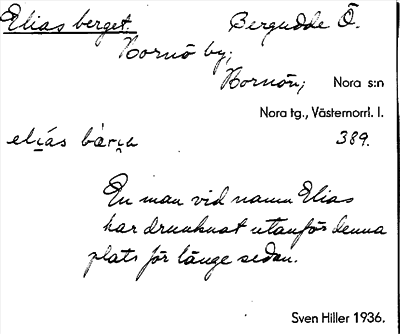 Elias berget Bergudde Ö.
Nornö by;
Nornön; Nora s:n
Nora tg., Västernorrl. l.
389.
En man vid namn Elias
har drunknat utanför denna
plats för länge sedan.
Sven Hiller 1936.